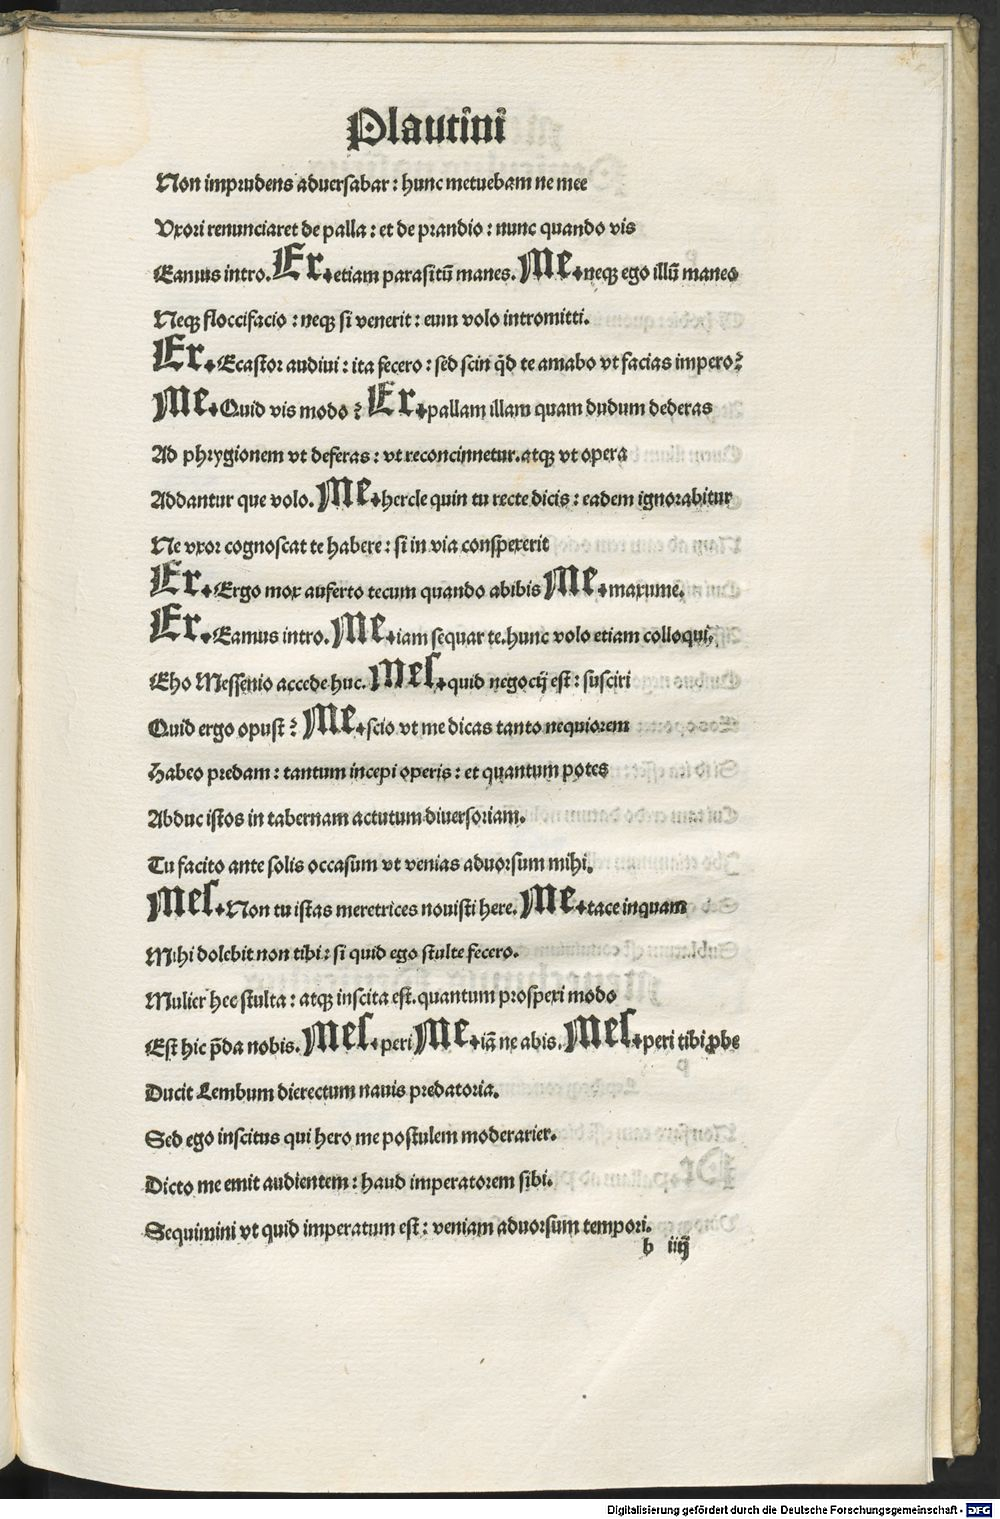 Plautini
Non imprudens aduersabar : hunc metuebam ne mee
Vxori renunciaret de palla : et de prandio : nunc quando vis
Eamus intro. Er. etiam parasitū manes. Me. neqȝ ego illū maneo
Neqȝ floccifacio : neqȝ si venerit : eum volo intromitti.
Er. Ecastor audiui : ita fecero : sed scin q̄d te amabo vt facias impero?
Me. Quid vis modo ? Er. pallam illam quam dudum dederas
Ad phrygionem vt deferas : vt reconcinnetur. atqȝ vt opera
Addantur que volo. Me. hercle quin tu recte dicis : eadem ignorabitur
Ne vxor cognoscat te habere : si in via conspexerit
Er. Ergo mox auferto tecum quando abibis Me. maxume.
Er. Eamus intro. Me. iam sequar te. hunc volo etiam colloqui.
Eho Messenio accede huc. Mes. quid negocij est : susciri
Quid ergo opust ? Me. scio vt me dicas tanto nequiorem
Habeo predam : tantum incepi operis : et quantum potes
Abduc istos in tabernam actutum diuersoriam.
Tu facito ante solis occasum vt venias aduorsum mihi.
Mes. Non tu istas meretrices nouisti here. Me. tace inquam
Mihi dolebit non tibi : si quid ego stulte fecero.
Mulier hec stulta : atqȝ inscita est. quantum prosperi modo
Est hic p̄da nobis. Mes. peri Me. iā ne abis. Mes. peri tibi ꝓbe
Ducit Lembum dierectum nauis predatoria.
Sed ego inscitus qui hero me postulem moderarier.
Dicto me emit audientem : haud imperatorem sibi.
Sequimini vt quid imperatum est : veniam aduorsum tempori.
b iiij
Digitalisierung gefördert durch die Deutsche Forschungsgemeinschaft - DFG